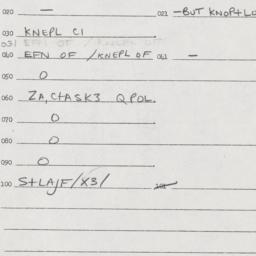 020 — 021 —BUT KNOP+LO
030 KNEPL CI
031
040 EFN OF /KNEPL OF 041 —
050 O
060 ZA, C+ASK3 QPOL.
070 O
080 O
090 O
100 S+LAJF/X3/